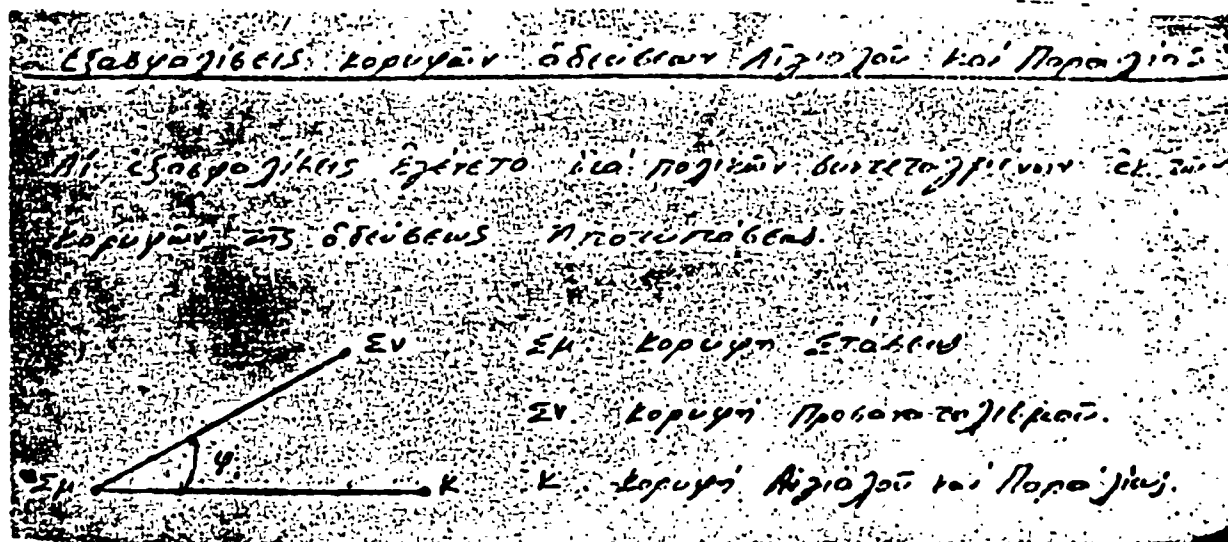 Ἐξασφαλίσεις κορυφῶν ὁδεύσεων Αἰγιαλοῦ καί Παραλίας
Αἱ ἐξασφαλίσεις ἐγένετο διά πολικῶν συντεταγμένων ἐκ τῶν
κορυφῶν τῆς ὁδεύσεως Ἀποτυπώσεως.
Σν
Σμ κορυφή Στάσεως
Σν. κορυφή Προσανατολισμοῦ.
φ
Σμ
Κ
Κ κορυφή Αἰγιαλοῦ καί Παραλίας.